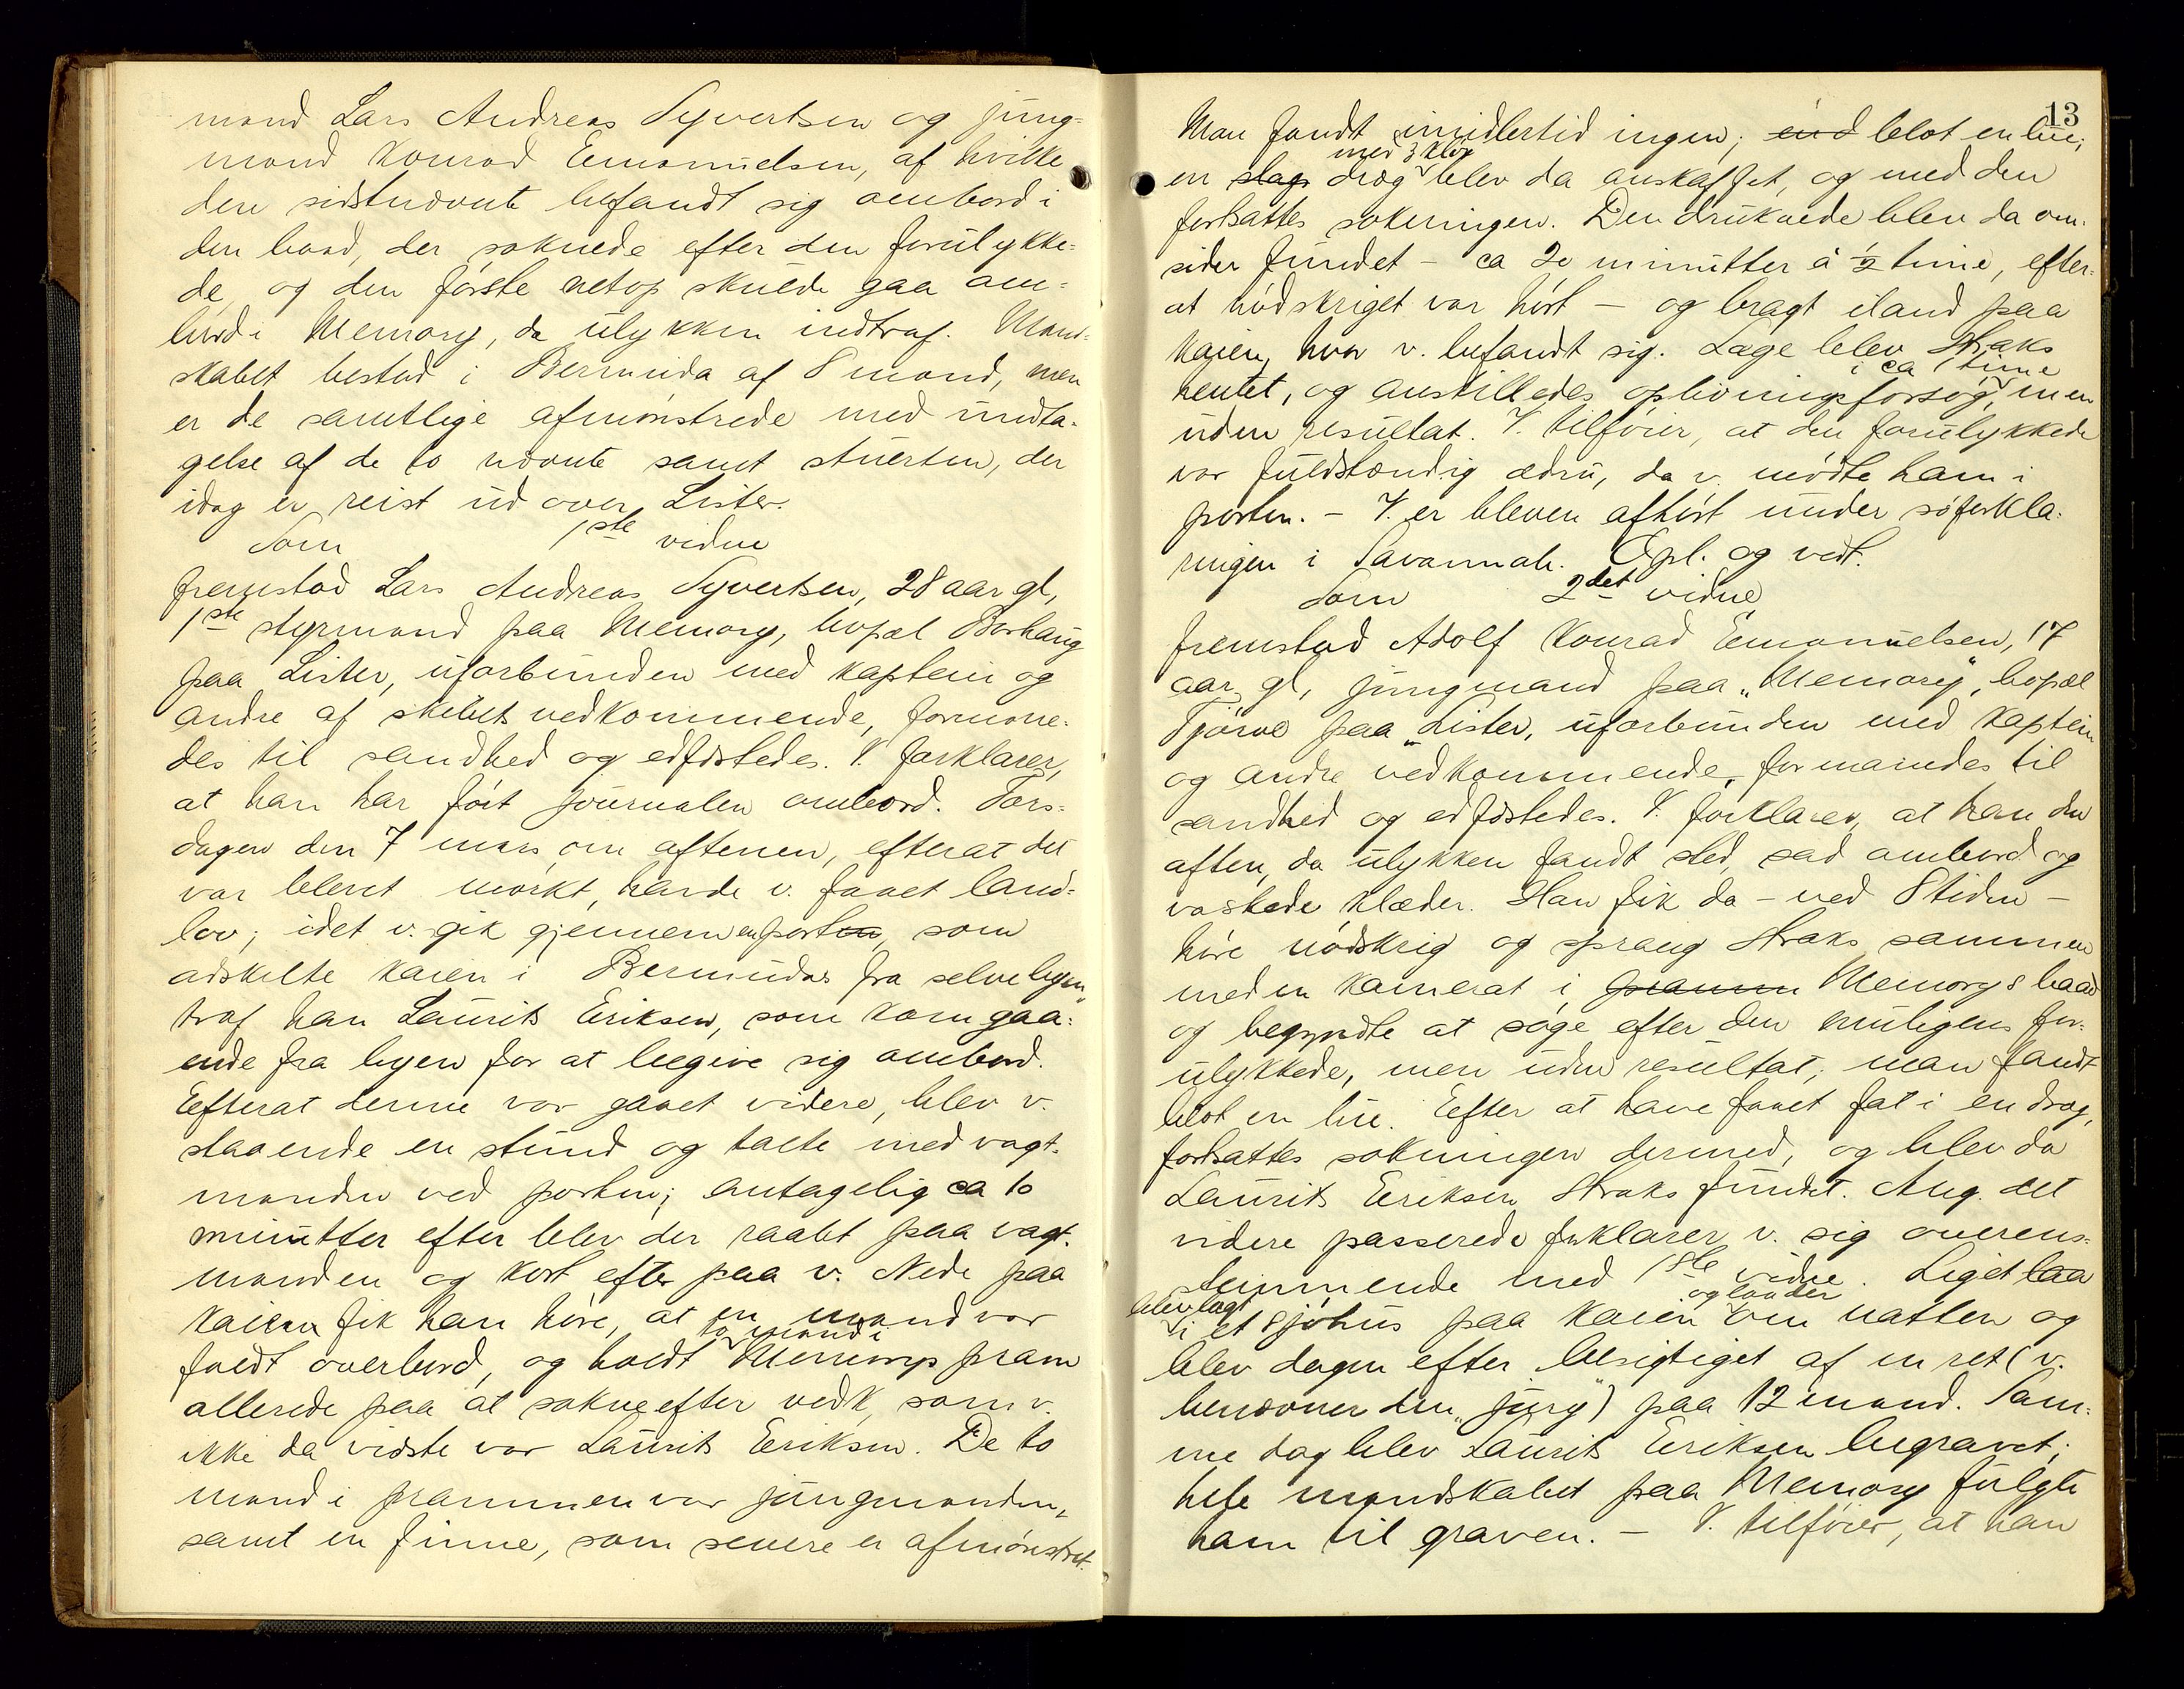 mand Lars Andreas Syvertsen og jung-
mand Konrad Emanuelsen, af hvilke
den sidstnævnte befandt sig ombord i
den baad, der soknede efter den forulykke-
de, og den første netop skulde gaa om-
bord i Memory, da ulykken indtraf. Mand-
skabet bestod i Bermuda af 8 mand, men
er de samtlige afmønstrede med undta-
gelse af de to nævnte samt stuerten, der
idag er reist ud over Lister.
Som 1ste vidne
fremstod Lars Andreas Syvertsen, 28 aar gl,
1ste styrmand paa Memory, bopæl Borhaug
paa Lister, uforbunden med kaptein og
andre af skibets vedkommende, formane-
des til sandhed og edfæstedes. V. forklarer,
at han har ført journalen ombord. Tors-
dagen den 7 mars om aftenen, efterat det
var blevet mørkt, havde v. faaet land-
lov; idet v. gik gjennem en porten, som
adskilte kaien i Bermudas fra selve byen,
traf han Laurits Eriksen, som kom gaa-
ende fra byen for at begive sig ombord.
Efterat denne var gaaet videre, blev v.
staaende en stund og talte med vagt-
manden ved porten; antagelig ca 10
minutter efter blev der raabt paa vagt-
manden og kort efter paa v. Nede paa
kaien fik han høre, at en mand var
to mand i
faldt overbord, og holdt Memorys pram
allerede paa at sokne efter vedk, som v.
ikke da vidste var Laurits Eriksen. De to
mand i prammen var jungmanden,
samt en finne, som senere er afmønstret.
13
Man fandt imidlertid ingen; end blot en lue;
med 3 klør
en slags dræg blev da anskaffet, og med den
fortsattes sokningen. Den druknede blev da om-
sider fundet - ca 20 minutter à ½ time, efter-
at nødskriget var hørt - og bragt iland paa
kaien, hvor v. befandt sig. Læge blev straks
i ca 1 time
hentet, og anstilledes oplivningsforsøg, men
uden resultat. V. tilføier, at den forulykkede
var fuldstændig ædru, da v. mødte ham i
porten. - V. er bleven afhørt under søforkla-
ringen i Savannah. Opl. og vedt.
Som 2det vidne
fremstod Adolf Konrad Emanuelsen, 17
aar gl, jungmand paa "Memory", bopæl
Tjørve paa Lister, uforbunden med kaptein
og andre vedkommende, formanedes til
sandhed og edfæstedes. V. forklarer, at han den
aften, da ulykken fandt sted, sad ombord og
vaskede klæder. Han fik da - ved 8 tiden -
høre nødskrig og sprang straks sammen
med en kamerat i prammen Memorys baad
og begyndte at søge efter den muligens for-
ulykkede, men uden resultat; man fandt
blot en lue. Efter at have faaet fat i en dræg,
fortsattes sokningen dermed, og blev da
Laurits Eriksen straks fundet. Ang. det
videre passerede forklarer v. sig overens-
stemmende med 1ste vidne. Liget laa
blev lagt og laa der
i et sjøhus paa kaien om natten og
blev dagen efter besigtiget af en ret (v.
benævner den "jury") paa 12 mand. Sam-
me dag blev Laurits Eriksen begravet;
hele mandskabet paa Memory fulgte
ham til graven. - V. tilføier, at han